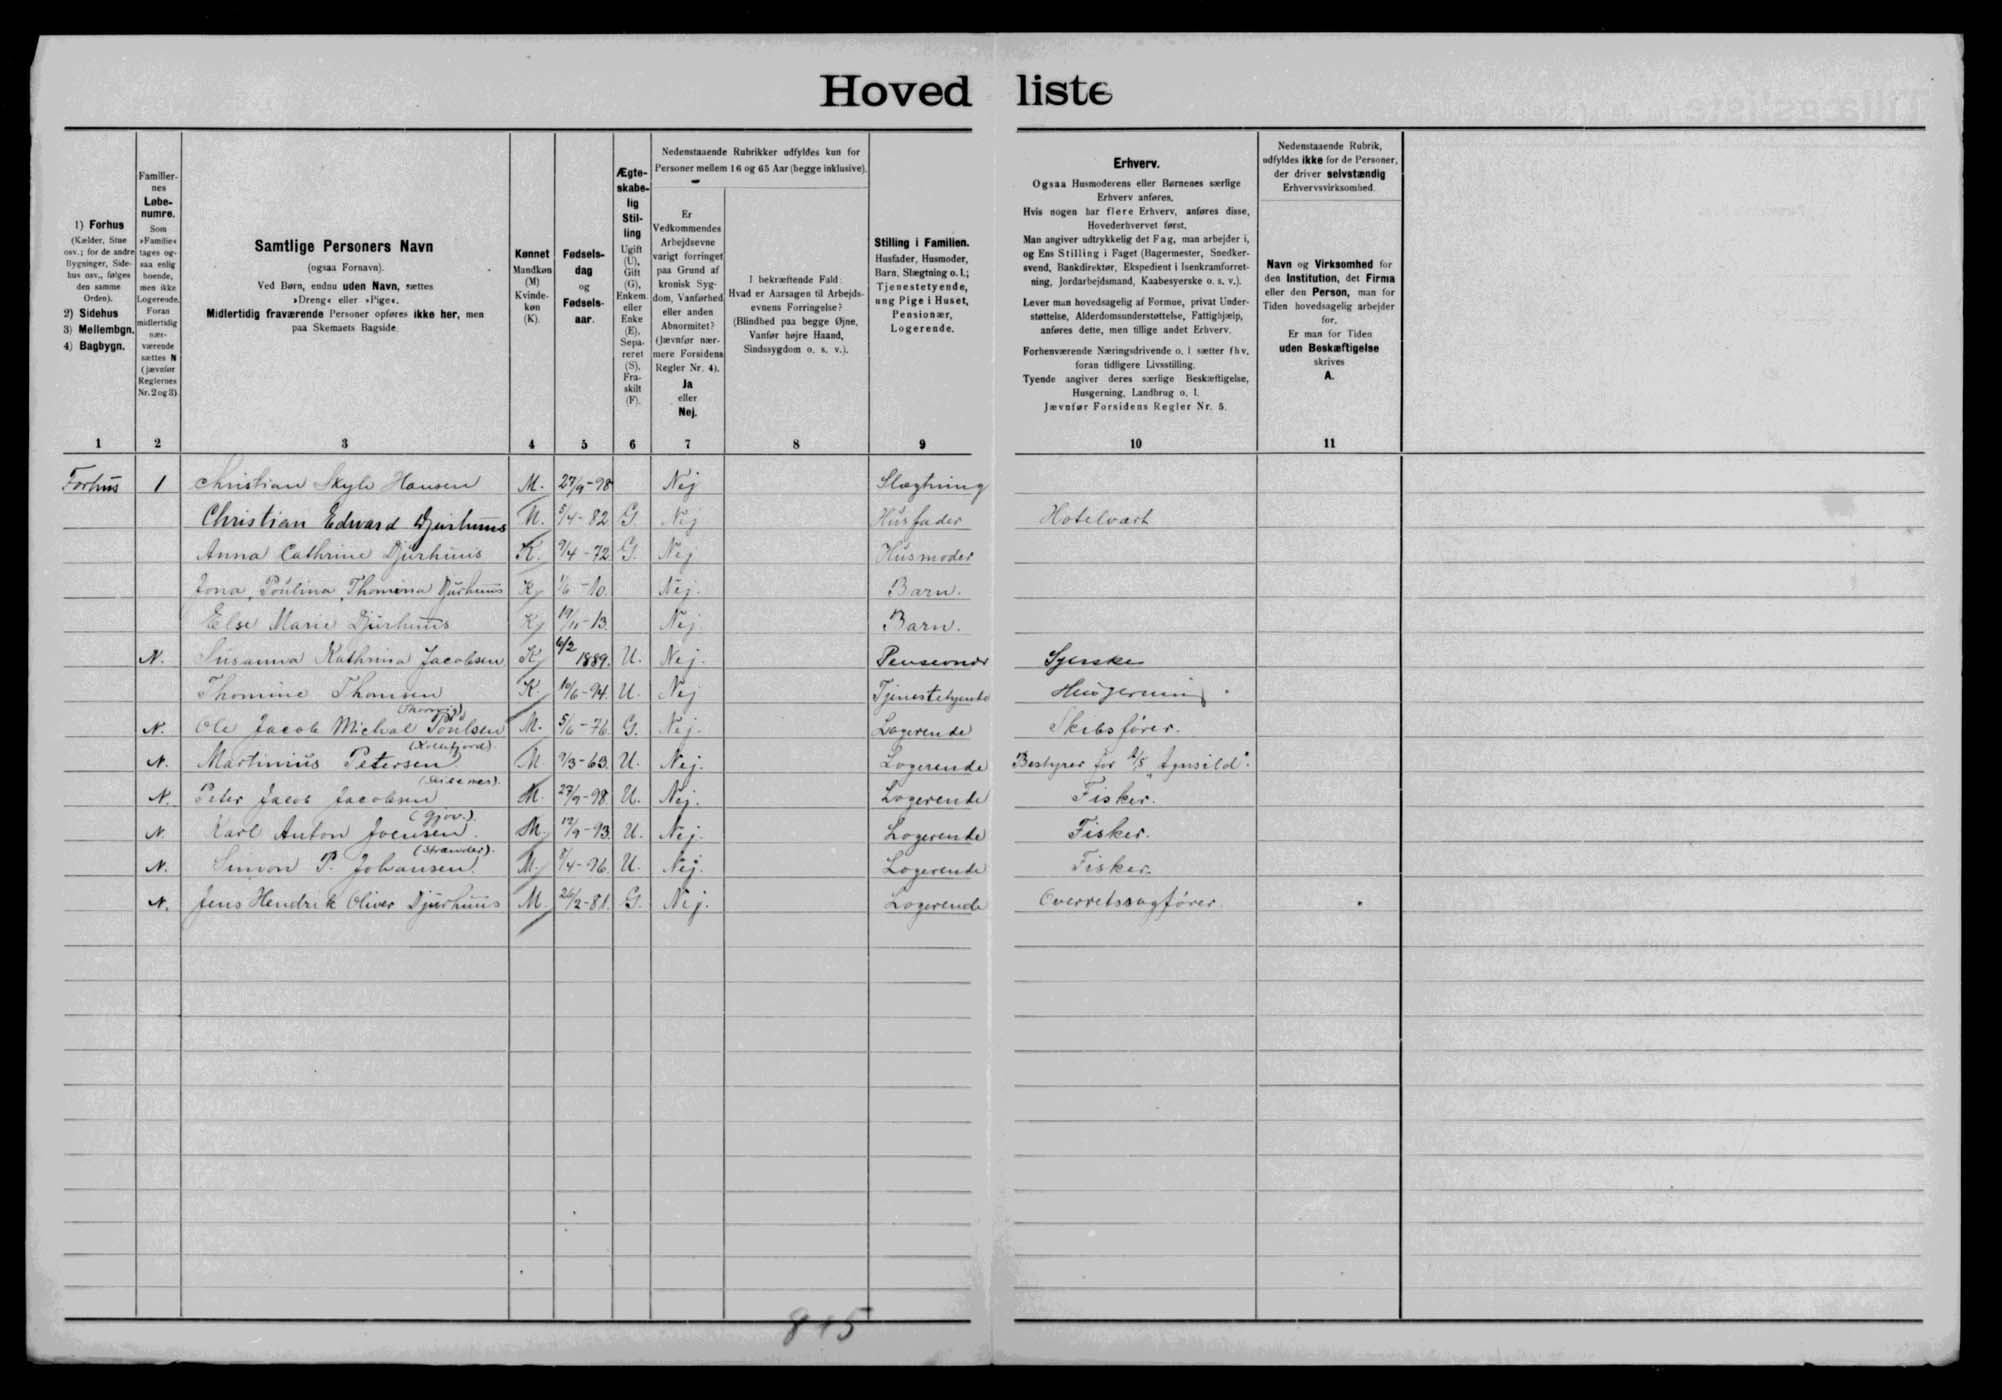 Hovedliste
1) Forhus
(Kælder, Stue
osv.; for de andre
Bygninger, Side-
hus osv., følges
den samme
Orden).
2) Sidehus
3) Mellembgn.
4) Bagbygn.
1
Familier-
nes
Løbe-
numre.
Som
»Familie«
tages og-
saa enlig
boende,
men ikke
Logerende.
Foran
midlertidig
nær-
værende
sættes N
(jævnfør
Reglernes
Nr. 2 og 3).
2
Samtlige Personers Navn
(ogsaa Fornavn).
Ved Børn, endnu uden Navn, sættes
»Dreng« eller »Pige«.
Midlertidig fraværende Personer opføres ikke her, men
paa Skemaets Bagside.
3
Kønnet
Mandkøn
(M)
Kvinde-
køn
(K).
4
Fødsels-
dag
og
Fødsels-
aar.
5
Ægte-
skabe-
lig
Stil-
ling
Ugift
(U),
Gift
(G),
Enkem.
eller
Enke
(E),
Sepa-
reret
(S),
Fra-
skilt
(F).
6
Nedenstaaende Rubrikker udfyldes kun for
Personer mellem 16 og 65 Aar (begge inklusive).
Er
Vedkommendes
Arbejdsevne
varigt forringet
paa Grund af
kronisk Syg-
dom, Vanførhed
eller anden
Abnormitet?
(Jævnfør nær-
mere Forsidens
Regler Nr. 4).
Ja
eller
Nej.
7
I bekræftende Fald:
Hvad er Aarsagen til Arbejds-
evnens Forringelse?
(Blindhed paa begge Øjne,
Vanfør højre Haand,
Sindssygdom o. s. v.).
8
Stilling i Familien.
Husfader, Husmoder,
Barn, Slægtning o. l.;
Tjenestetyende,
ung Pige i Huset,
Pensionær,
Logerende.
9
Erhverv.
Ogsaa Husmoderens eller Børnenes særlige
Erhverv anføres.
Hvis nogen har flere Erhverv, anføres disse,
Hovederhvervet først.
Man angiver udtrykkelig det Fag, man arbejder i,
og Ens Stilling i Faget (Bagermester, Snedker-
svend, Bankdirektør, Ekspedient i Isenkramforret-
ning, Jordarbejdsmand, Kaabesyerske o. s. v.).
Lever man hovedsagelig af Formue, privat Under-
støttelse, Alderdomsunderstøttelse, Fattighjælp,
anføres dette, men tillige andet Erhverv.
Forhenværende Næringsdrivende o. l. sætter fhv.
foran tidligere Livsstilling.
Tyende angiver deres særlige Beskæftigelse,
Husgerning, Landbrug o. l.
Jævnfør Forsidens Regler Nr. 5.
10
Nedenstaaende Rubrik,
udfyldes ikke for de Personer,
der driver selvstændig
Erhvervsvirksomhed.
Navn og Virksomhed for
den Institution, det Firma
eller den Person, man for
Tiden hovedsagelig arbejder
for.
Er man for Tiden
uden Beskæftigelse
skrives
A.
11
Forhus 1 Christian Skyle Hansen M. 27/9-98 Nej Slægtning
Christian Edward Djurhuus M. 5/4-82 G. Nej Husfader Hotelvært
Anna Cathrine Djurhuus K. 9/4-72 G. Nej Husmoder
Jona Poulina Thomina Djurhuus K. -10. Nej. Barn.
Else Marie Djurhuus K. 19/11-13. Nej. Barn.
N. Susanna Kathrina Jacobsen K. 6/2 1889. U. Nej. Pensionær Syerske
Thomine Thomsen K. 10/6-94. U. Nej Tjenestetyende Husgerning
N. Ole Jacob Michal Poulsen M. 5/6-76. G. Nej. Logerende Skibsfører.
(Kollefjord).
N. Martinius Petersen M 9/3-63. U. Nej. Logerende Bestyrer for A/S "Agnsild".
N. Peter Jacob Jacobsen M. 27/9-98. U. Nej. Logerende Fisker.
(Gjov.).
N. Karl Anton Joensen. M. 12/9-93. U. Nej. Logerende Fisker.
(Strander).
N. Simon P. Johansen. M. /4-96. U. Nej. Logerende Fisker.
N. Jens Hendrik Oliver Djurhuus M. 26/2-81. G. Nej. Logerende Overretssagfører.